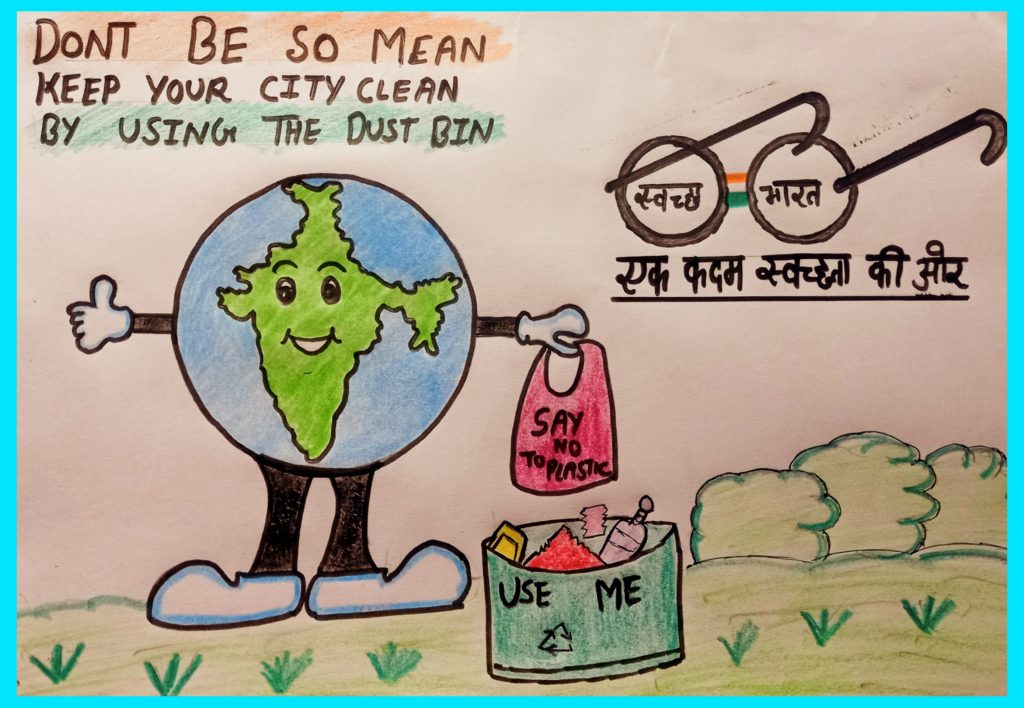 DONT BE SO MEAN
KEEP YOUR CITY CLEAN
BY USING THE DUST BIN
स्वच्छ भारत
एक कदम स्वच्छता की ओर
SAY
NO
TO PLASTIC
USE ME